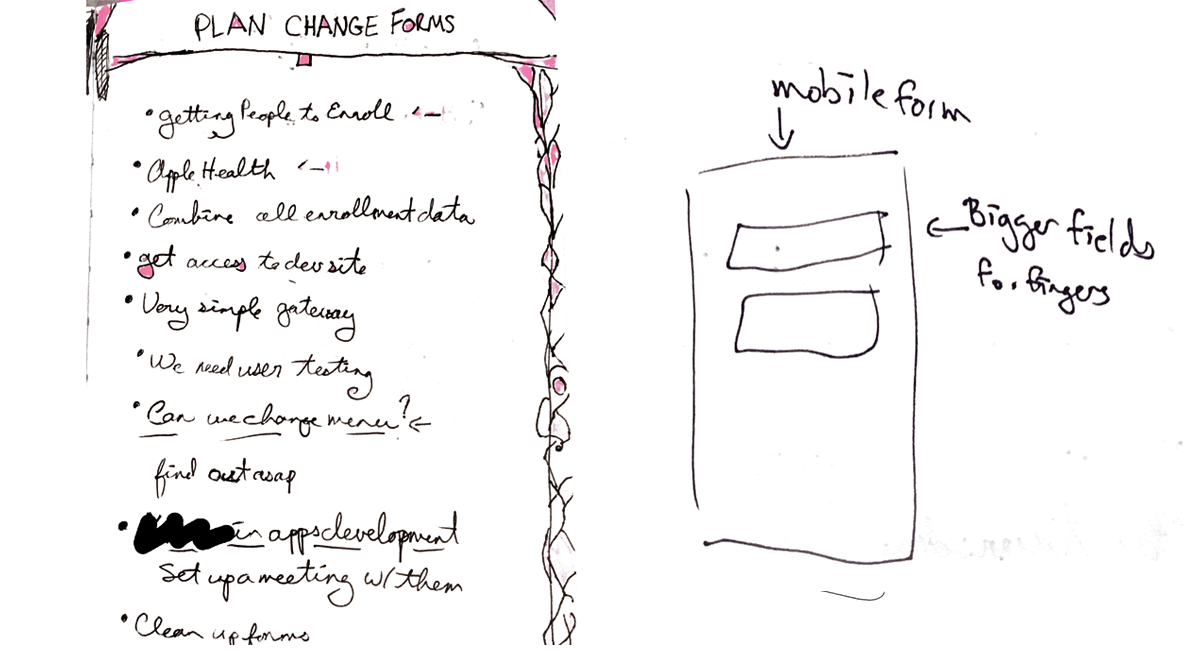 PLAN CHANGE FORMS
• getting People to Enroll ←
• Apple Health ←
• Combine all enrollment data
• get access to dev site
• Very simple gateway
• We need user testing
• Can we change menu? ←
find out asap
• in apps development
Set up a meeting w/ them
• Clean up forms
mobile form
↓
← Bigger fields
for fingers